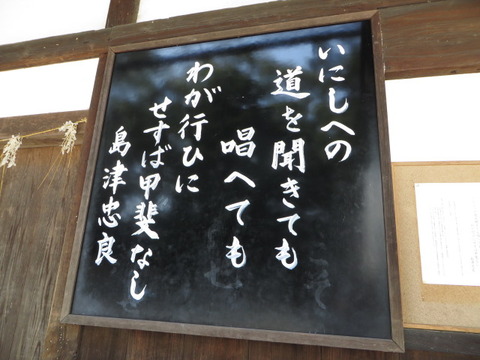 いにしへの
道を聞きても
唱へても
わが行ひに
せすば甲斐なし
島津忠良